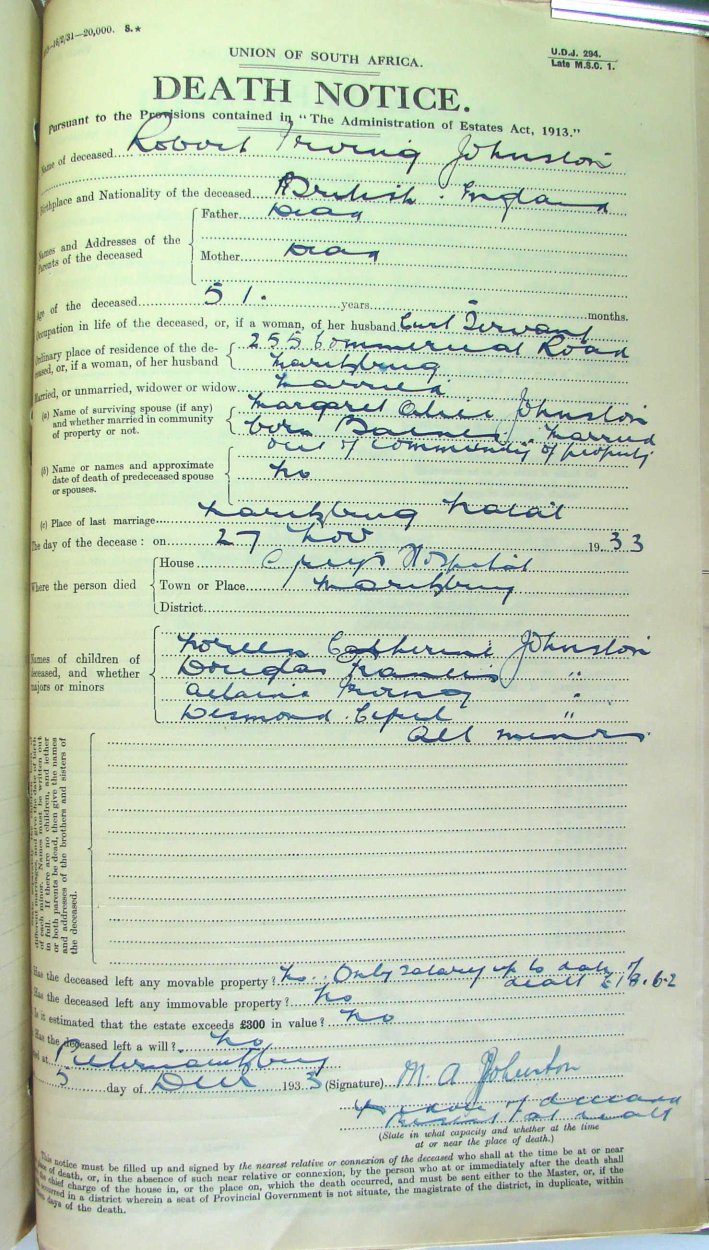 16/2/31—20,000. S.*
U.D.J. 294.
Late M.S.C. 1.
UNION OF SOUTH AFRICA.
DEATH NOTICE.
Pursuant to the Provisions contained in "The Administration of Estates Act, 1913."
Name of deceased Robert Irving Johnston
Birthplace and Nationality of the deceased British. England
Names and Addresses of the Parents of the deceased
Father Dead
Mother Dead
Age of the deceased 51. years months.
Occupation in life of the deceased, or, if a woman, of her husband Civil Servant
Ordinary place of residence of the deceased, or, if a woman, of her husband
255 Commercial Road
Maritzburg
Married, or unmarried, widower or widow Married
(a) Name of surviving spouse (if any) and whether married in community of property or not.
Margaret Johnston
born Married
out of community of property
(b) Name or names and approximate date of death of predeceased spouse or spouses.
No
(c) Place of last marriage Maritzburg Natal
The day of the decease: on 27 Nov 1933
Where the person died
House Greys Hospital
Town or Place Maritzburg
District
Names of children of deceased, and whether majors or minors
Noreen Catherine Johnston
Douglas Francis "
Irving "
Desmond Cyril "
All minors
of each minor. Names must be written out
in full. If there are no children, and either
or both parents be dead, then give the names
and addresses of the brothers and sisters of
the deceased.
Has the deceased left any movable property? No. Only salary up to date of
death £18.6.2
Has the deceased left any immovable property? No
Is it estimated that the estate exceeds £300 in value? No
Has the deceased left a will? No
Dated at Pietermaritzburg
5 day of Dec 1933 (Signature) M A Johnston
Widow of deceased
Present at death
(State in what capacity and whether at the time
at or near the place of death.)
This notice must be filled up and signed by the nearest relative or connexion of the deceased who shall at the time be at or near
place of death, or, in the absence of such near relative or connexion, by the person who at or immediately after the death shall
the chief charge of the house in, or the place on, which the death occurred, and must be sent either to the Master, or, if the
occurred in a district wherein a seat of Provincial Government is not situate, the magistrate of the district, in duplicate, within
days of the death.